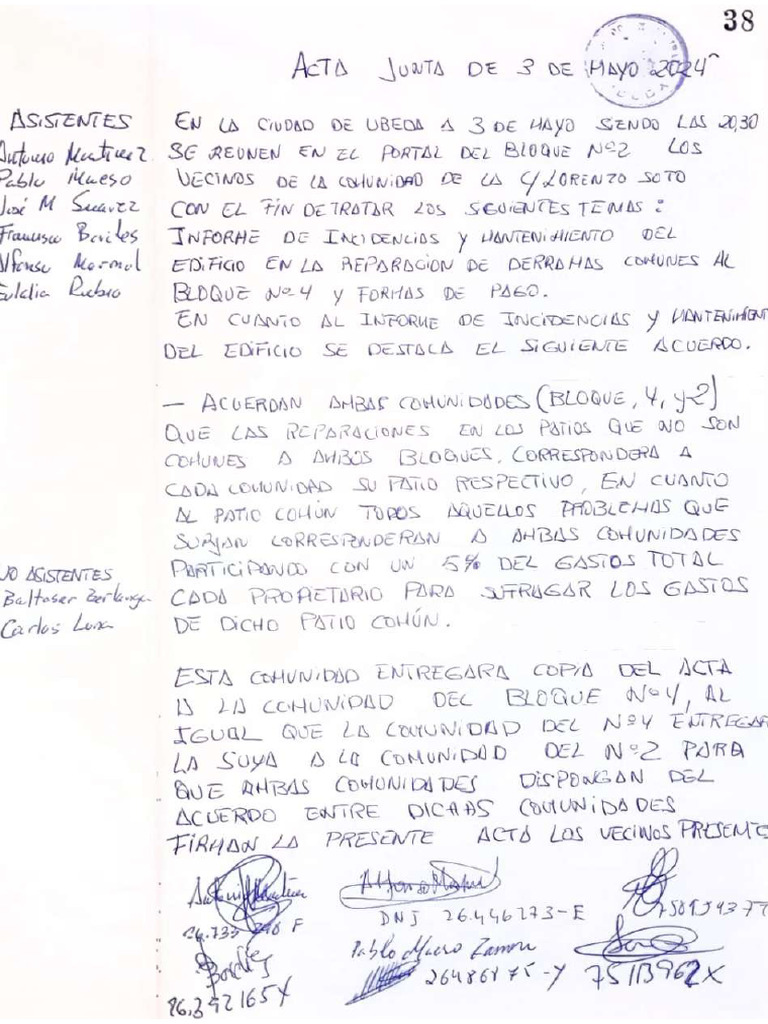 38
ACTA JUNTA DE 3 DE MAYO 2024
ASISTENTES
Antonio Martinez
Pablo Mueso
José M Suarez
Francisco Boviles
Alfonso Marmol
Eulalia Rubio
EN LA CIUDAD DE UBEDA A 3 DE MAYO SIENDO LAS 20,30
SE REUNEN EN EL PORTAL DEL BLOQUE Nº2 LOS
VECINOS DE LA COMUNIDAD DE LA C/ LORENZO SOTO
CON EL FIN DE TRATAR LOS SEGUIENTES TEMAS :
INFORME DE INCIDENCIAS Y MANTENIMIENTO DEL
EDIFICIO EN LA REPARACION DE DERRAMAS COMUNES AL
BLOQUE Nº4 Y FORMAS DE PAGO.
EN CUANTO AL INFORME DE INCIDENCIAS Y MANTENIMIENT
DEL EDIFICIO SE DESTACA EL SIGUIENTE ACUERDO.
— ACUERDAN AMBAS COMUNIDADES (BLOQUE, 4, y 2)
QUE LAS REPARACIONES EN LOS PATIOS QUE NO SON
COMUNES A AMBOS BLOQUES, CORRESPONDERA A
CADA COMUNIDAD SU PATIO RESPECTIVO, EN CUANTO
AL PATIO COMÚN TODOS AQUELLOS PROBLEMAS QUE
SURJAN CORRESPONDERAN A AMBAS COMUNIDADES
PARTICIPANDO CON UN 5% DEL GASTOS TOTAL
CADA PROPIETARIO PARA SUFRAGAR LOS GASTOS
DE DICHO PATIO COMÚN.
NO ASISTENTES
Baltasar Berlanga
Carlos Luna
ESTA COMUNIDAD ENTREGARA COPIA DEL ACTA
A LA COMUNIDAD DEL BLOQUE Nº4, AL
IGUAL QUE LA COMUNIDAD DEL Nº4 ENTREGAR
LA SUYA A LA COMUNIDAD DEL Nº2 PARA
QUE AMBAS COMUNIDADES DISPONGAN DEL
ACUERDO ENTRE DICHAS COMUNIDADES
FIRMAN LA PRESENTE ACTA LOS VECINOS PRESENTE
DNI 26.446273-E
Pablo Mueso Zamora
75113962X